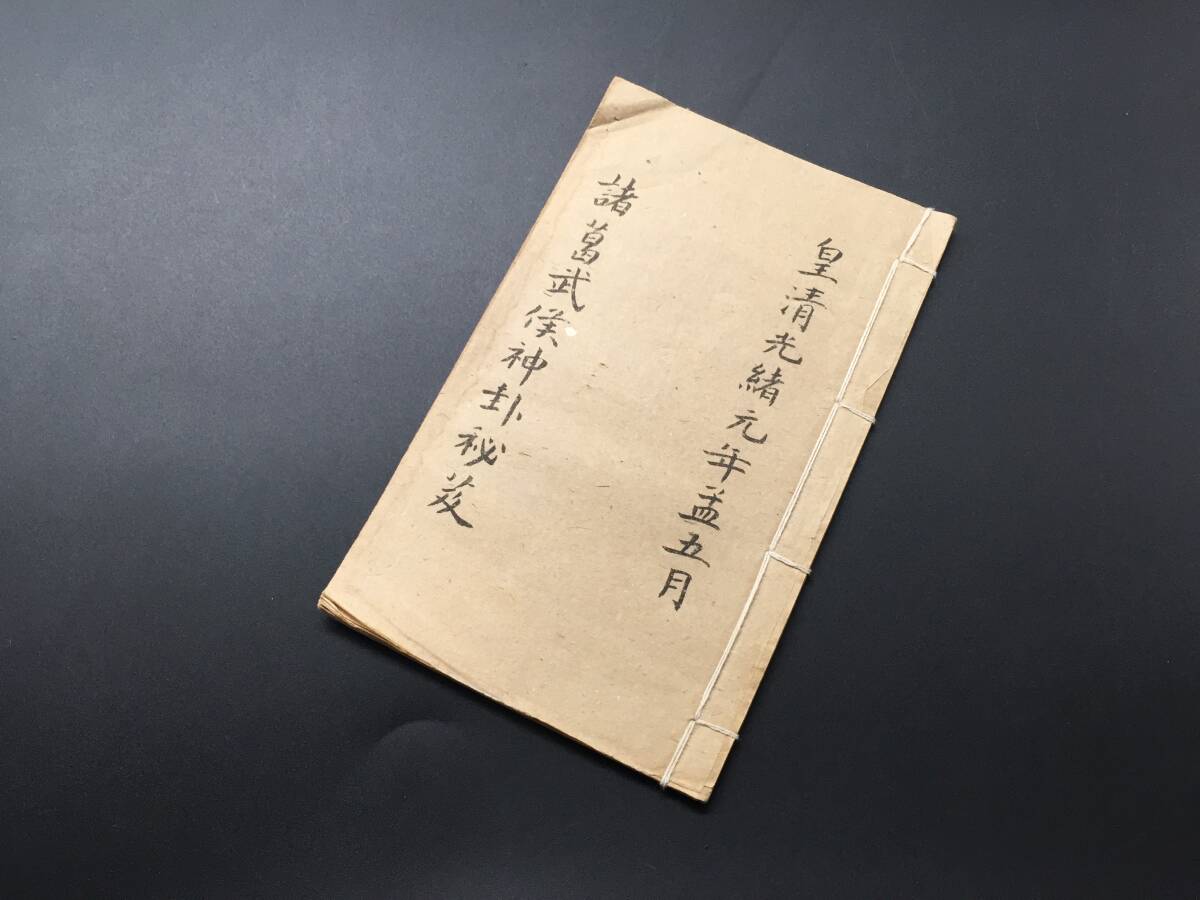 皇清光緒元年孟五月
諸葛武侯神卦秘芨